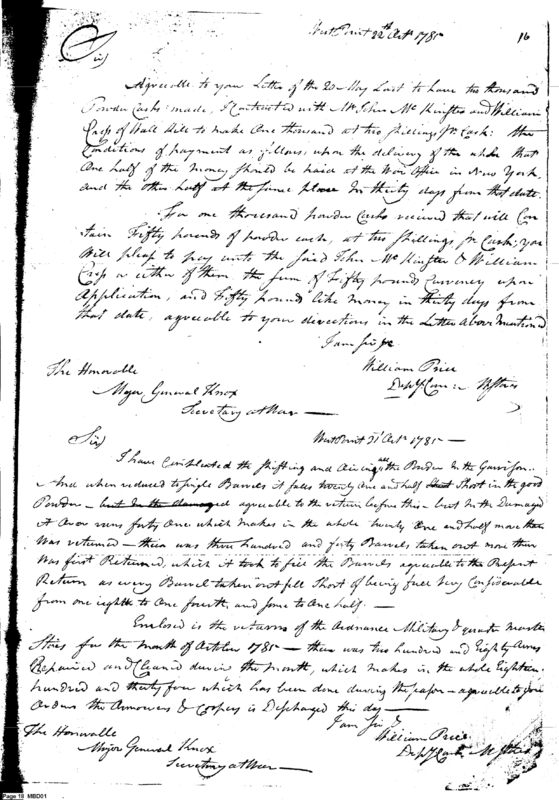 West Point 22th Octr 1785 16
Sir
Agreeable to your Letter of the 20 May Last to have two thousand
Powder Casks made, I Contracted with Mr John Mc Kinstre and William
Crisp of Wall Kill to make One thousand at two shillings pr Cask: the
Conditions of payment as follows, upon the delivery of the whole that
One half of the money should be paid at the War Office in New York,
and the other half at the same place in thirty days from that date.
For one thousand powder Casks received that will Con
tain Fifty pounds of powder each, at two shillings pr Cask; you
Will please to pay unto the said John Mc Kinstre & William
Crisp or either of them the sum of Fifty pounds Currency upon
Application, and Fifty pounds like money in thirty days from
that date, agreeable to your directions in the Letter Above Mentiond
I am Sir &c
The Honorable William Price
Major General Knox Depy Com: M Stores
Secretary at War
West Point 31t Octr 1785
Sir
I have Compleated the shifting and Airing all the Powder In the Garrison..
And when reduced to single Barrels it falls twenty One and half Short in the good
Powder - but In the damaged agreeable to the return before this - but In the Damaged
it Over runs forty One which makes in the whole twenty One and half more than
Was returned - there was three hundred and forty Barrels taken out more then
Was first Returned, which it took to fill the Barrels agreeable to the Present
Return as every Barrel taken out fell Short of being full Very Considerable
from one eighth to One fourth, and some to One half. -
Enclosed is the returns of the Ordnance Military & quarter master
Stores for the month of October 1785 - there was two hundred and Eighty Arms
Repaired and Cleaned durein the month, which makes in the whole Eighteen
hundred and thirty four which has been done dureing the season - agreeable to your
Orders the Armourers & Coopers is Discharged this day -
I am Sir &
The Honorable William Price
Major General Knox Depy Com: M Stores
Secretary at War
Page 18 MBD01